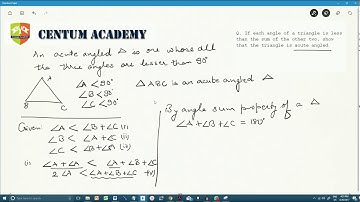 CENTUM ACADEMY
Q. If each angle of a triangle is less
than the sum of the other two, show
that the triangle is acute angled
An acute angled △ is one whose all
the three angles are lesser than 90°
A
B
C
∠A < 90°
∠B < 90°
∠C < 90°
△ ABC is an acute angled △
Given: ∠A < ∠B + ∠C (i)
∠B < ∠A + ∠C (ii)
∠C < ∠B + ∠A (iii)
(i) ∠A + ∠A < ∠A + ∠B + ∠C
2 ∠A < ∠A + ∠B + ∠C
By angle sum property of a △
∠A + ∠B + ∠C = 180°